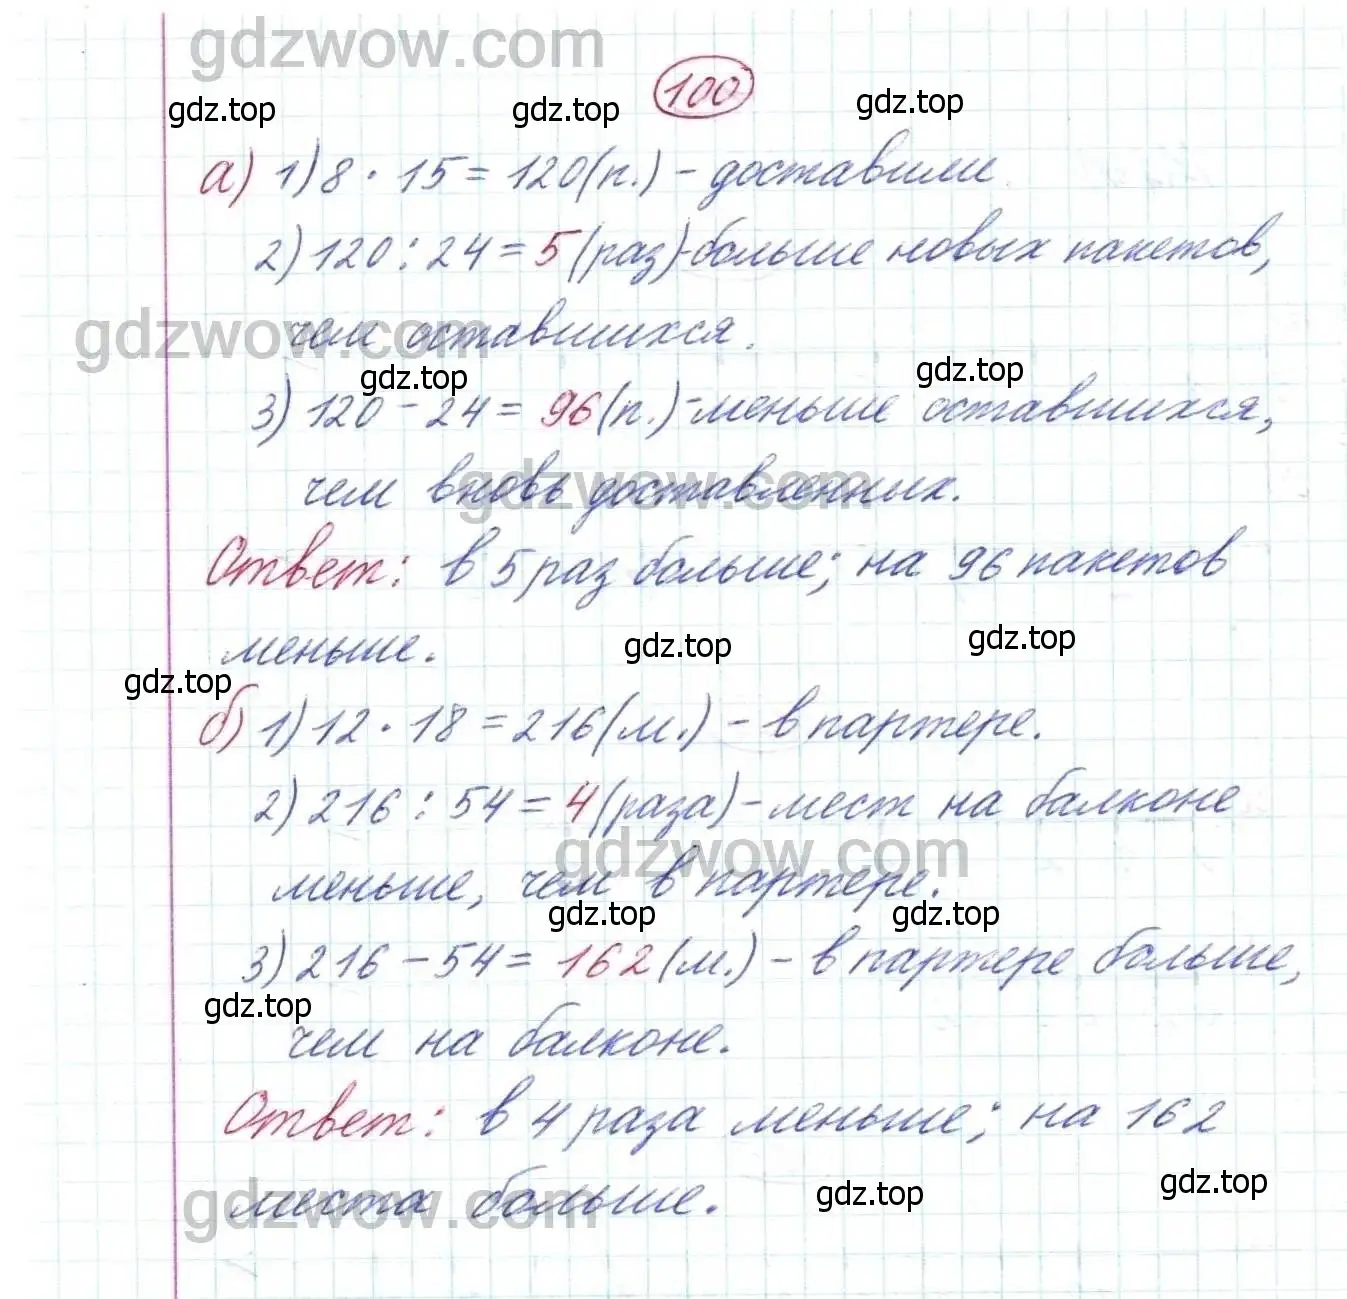 gdzwow.com
100
gdz.top gdz.top gdz.top
а) 1) 8 · 15 = 120 (п.) - доставили.
2) 120 : 24 = 5 (раз) - больше новых пакетов,
gdzwow.com
чем оставшихся.
gdz.top gdz.top
3) 120 - 24 = 96 (п.) - меньше оставшихся,
gdzwow.com
чем вновь доставленных.
Ответ: в 5 раз больше; на 96 пакетов
меньше.
gdz.top gdz.top
gdz.top
б) 1) 12 · 18 = 216 (м.) - в партере.
2) 216 : 54 = 4 (раза) - мест на балконе
gdzwow.com
меньше, чем в партере.
gdz.top gdz.top
3) 216 - 54 = 162 (м.) - в партере больше,
gdz.top
чем на балконе.
Ответ: в 4 раза меньше; на 162
gdzwow.com gdz.top gdz.top
места больше.